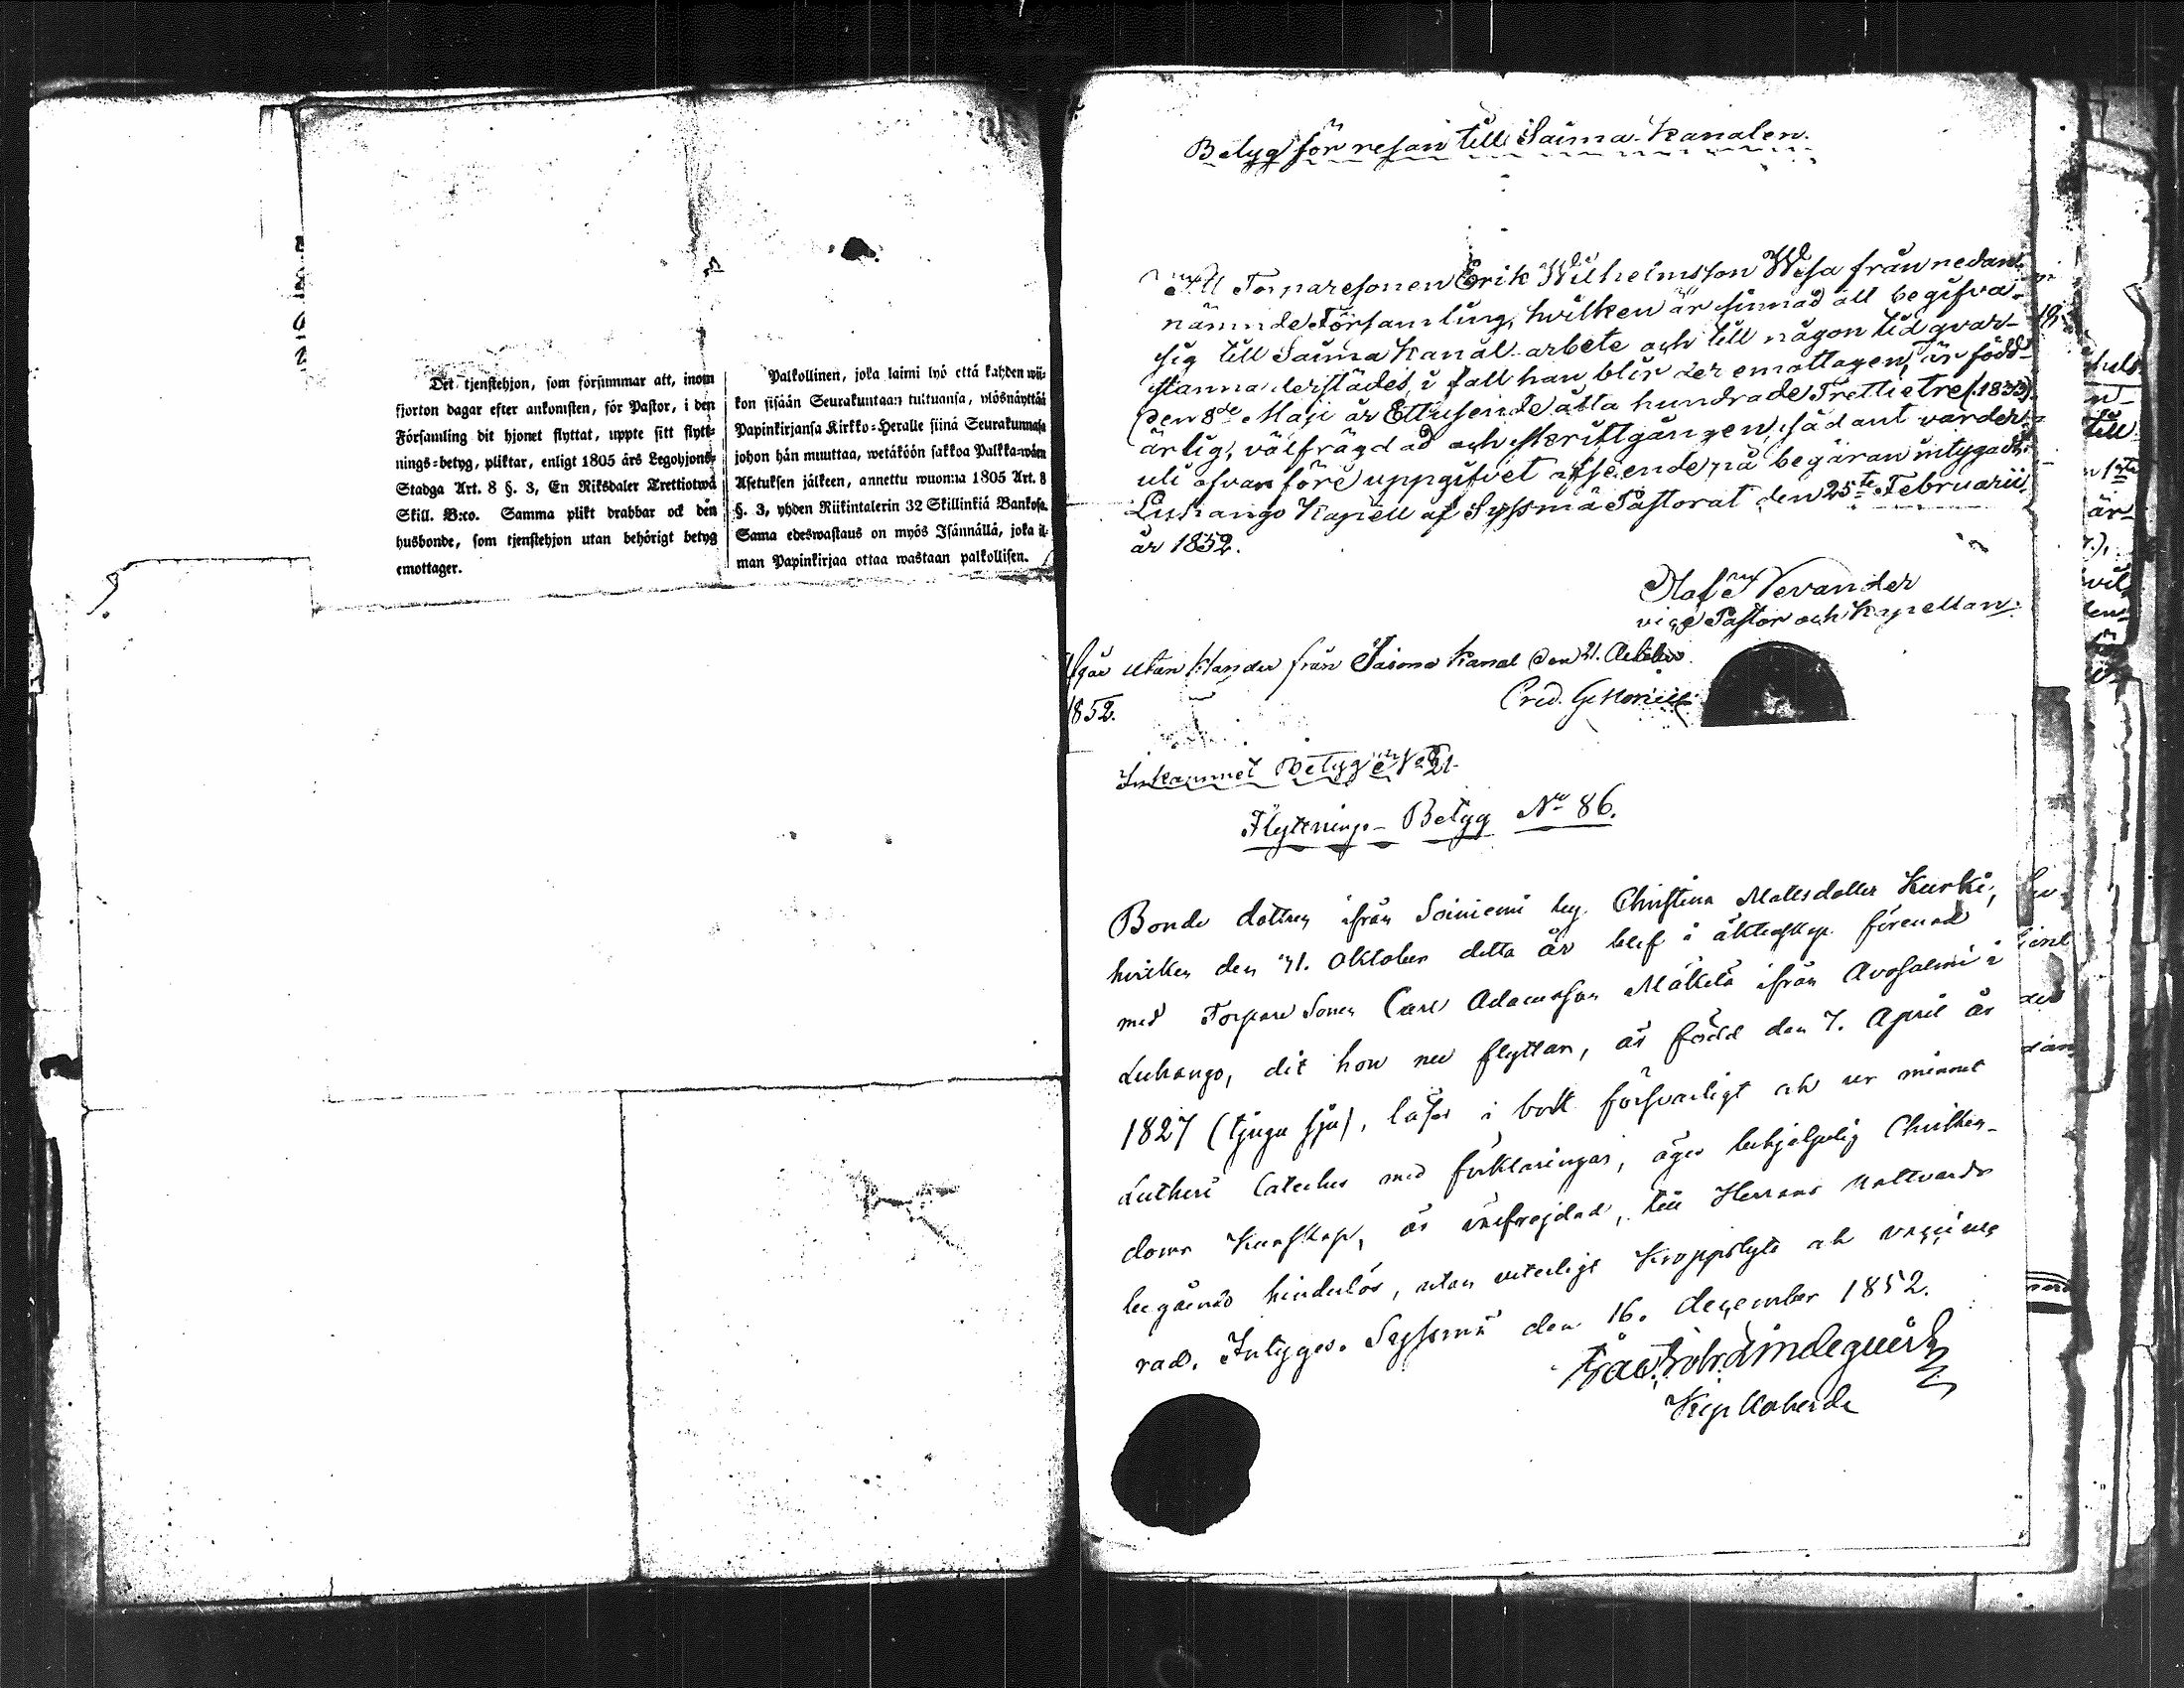 Det tjenstehjon, som försummar att, inom
fjorton dagar efter ankomsten, för Pastor, i den
Församling dit hjonet flyttat, uppte sitt flytt-
nings-betyg, pliktar, enligt 1805 års Legohjons-
Stadga Art. 8 §. 3, En Riksdaler Trettiotwå
Skill. B:co. Samma plikt drabbar ock den
husbonde, som tjenstehjon utan behörigt betyg
emottager.
Palkollinen, joka laimi lyö että kahden wii-
kon sisään Seurakuntaan tultuansa, ylösnäyttää
Papinkirjansa Kirkko-Heralle siinä Seurakunnasa
johon hän muuttaa, wetäköön sakkoa Palkka-wäen
Asetuksen jälkeen, annettu wuonna 1805 Art. 8
§. 3, yhden Riikintalerin 32 Skillinkiä Bankosa.
Sama edeswastaus on myös Isännällä, joka il-
man Papinkirjaa ottaa wastaan palkollisen.
Betyg för resan till Saima Kanalen.
Att Torparesonen Erik Wilhelmsson Wesa från nedan-
nämnde Församling, hvilken är sinnad att begifva
sig till Saima Kanal arbete och till någon tid qvar-
stanna derstädes, i fall han blir der emottagen, är född
den 8de Maji år Ettusende åtta hundrade Trettietre (1833),
ärlig, välfrägdad och skriftgången, sådant varder
uti ofvanföre uppgifvet afseende på begäran intygadt.
Luhango Kapell af Sysmä Pastorat den 25te Februarii
år 1852.
Olof Nevander
vice Pastor och Kapellan.
Afgår utan klander från Saima Kanal den 21. October
1852.
Inkommet Betyg No 21
Flyttnings-Betyg No 86.
Bonde dottren ifrån Soiniemi by Christina Mattsdotter Kurki,
hvilken den 31. Oktober detta år blef i äktenskap förenad
med Torpare Sonen Carl Adamsson Mäkelä ifrån Avosalmi i
Luhango, dit hon nu flyttar, är född den 7. April år
1827 (tjugu sju), läser i bok försvarligt och ur minnet
Lutheri Cateches med förklaringar, äger behjelpelig Christen-
doms Kunskap, är välfrejdad, till Herrans Nattvards
begående hinderlös, utan veterligt kroppslyte och vaccine-
rad. Intygas. Sysmä den 16. December 1852.
Lindequist